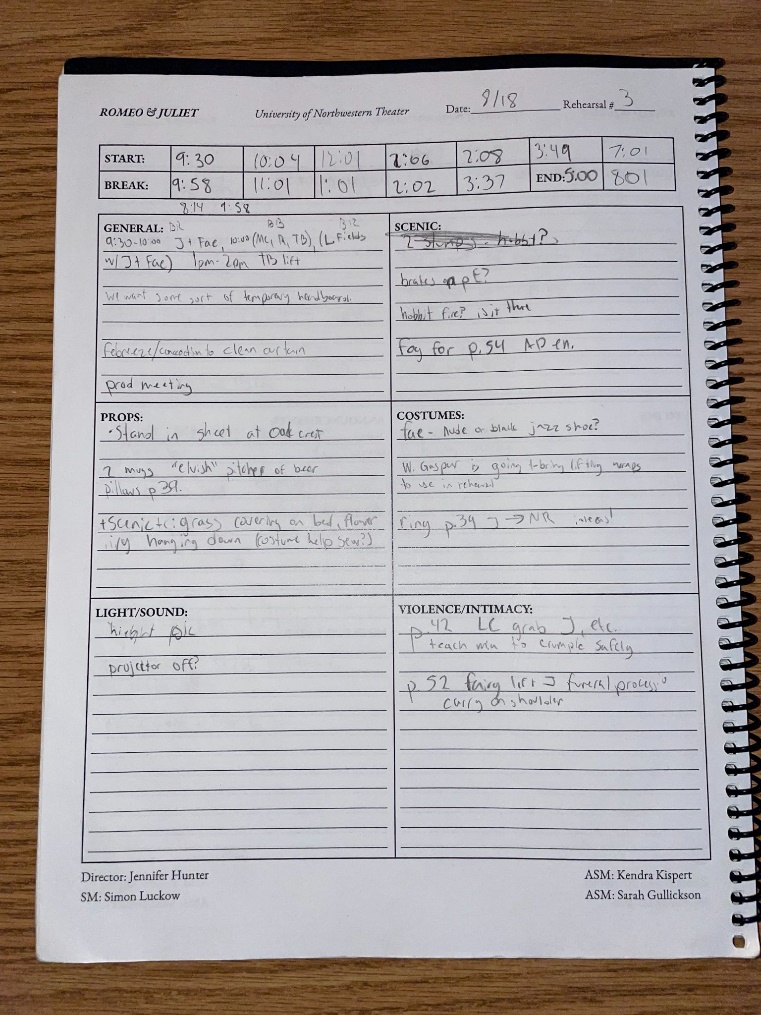 ROMEO & JULIET University of Northwestern Theater Date: 9/18 Rehearsal # 3
START: 9:30 10:04 12:01 2:06 2:08 3:49 7:01
BREAK: 9:58 11:01 1:01 2:02 3:37 END: 5:00 801
8:14 9:58
GENERAL:
9:30-10:00 J + Fae, 10:00 (Mc, A, TB), (L Fields
w/ J + Fae) 1pm-2pm TB lift
We want some sort of temporary headboard.
febreeze/concoction to clean curtain
prod meeting
SCENIC:
2 stumps - hobbit?
brakes on pE?
hobbit fire? is it there
Fog for p.54 AD en.
PROPS:
• Stand in sheet at Oak crest
2 mugs "elvish" pitcher of beer
pillows p39.
+scenic: grass covering on bed, flower
ivy hanging down (costume help sew?)
COSTUMES:
fae - nude or black jazz shoe?
W. Gaspar is going to bring lifting
to use in rehearsal
ring p.39 J → NR
LIGHT/SOUND:
pic
projector off?
VIOLENCE/INTIMACY:
p.42 LC grab J, etc.
teach to crumple safely
p.52 fairy lift J funeral process
carry on shoulder
Director: Jennifer Hunter
SM: Simon Luckow
ASM: Kendra Kispert
ASM: Sarah Gullickson